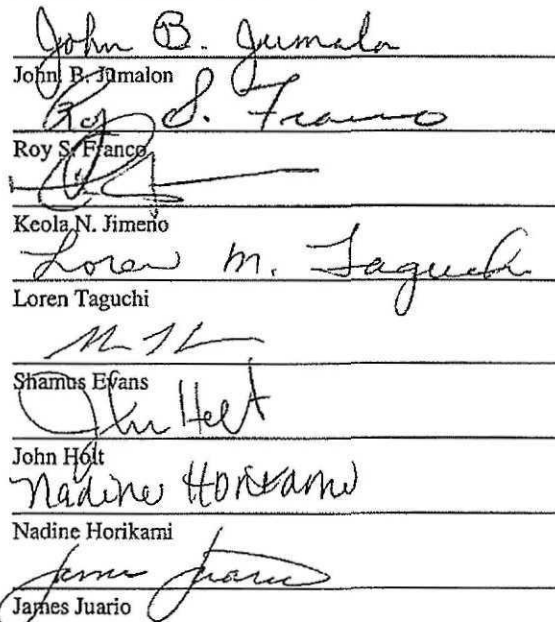 John B. Jumalon
John B. Jumalon
Roy S. Franco
Roy S. Franco
Keola N. Jimeno
Loren M. Taguchi
Loren Taguchi
Shamus Evans
John Holt
John Holt
Nadine Horikami
Nadine Horikami
James Juario
James Juario